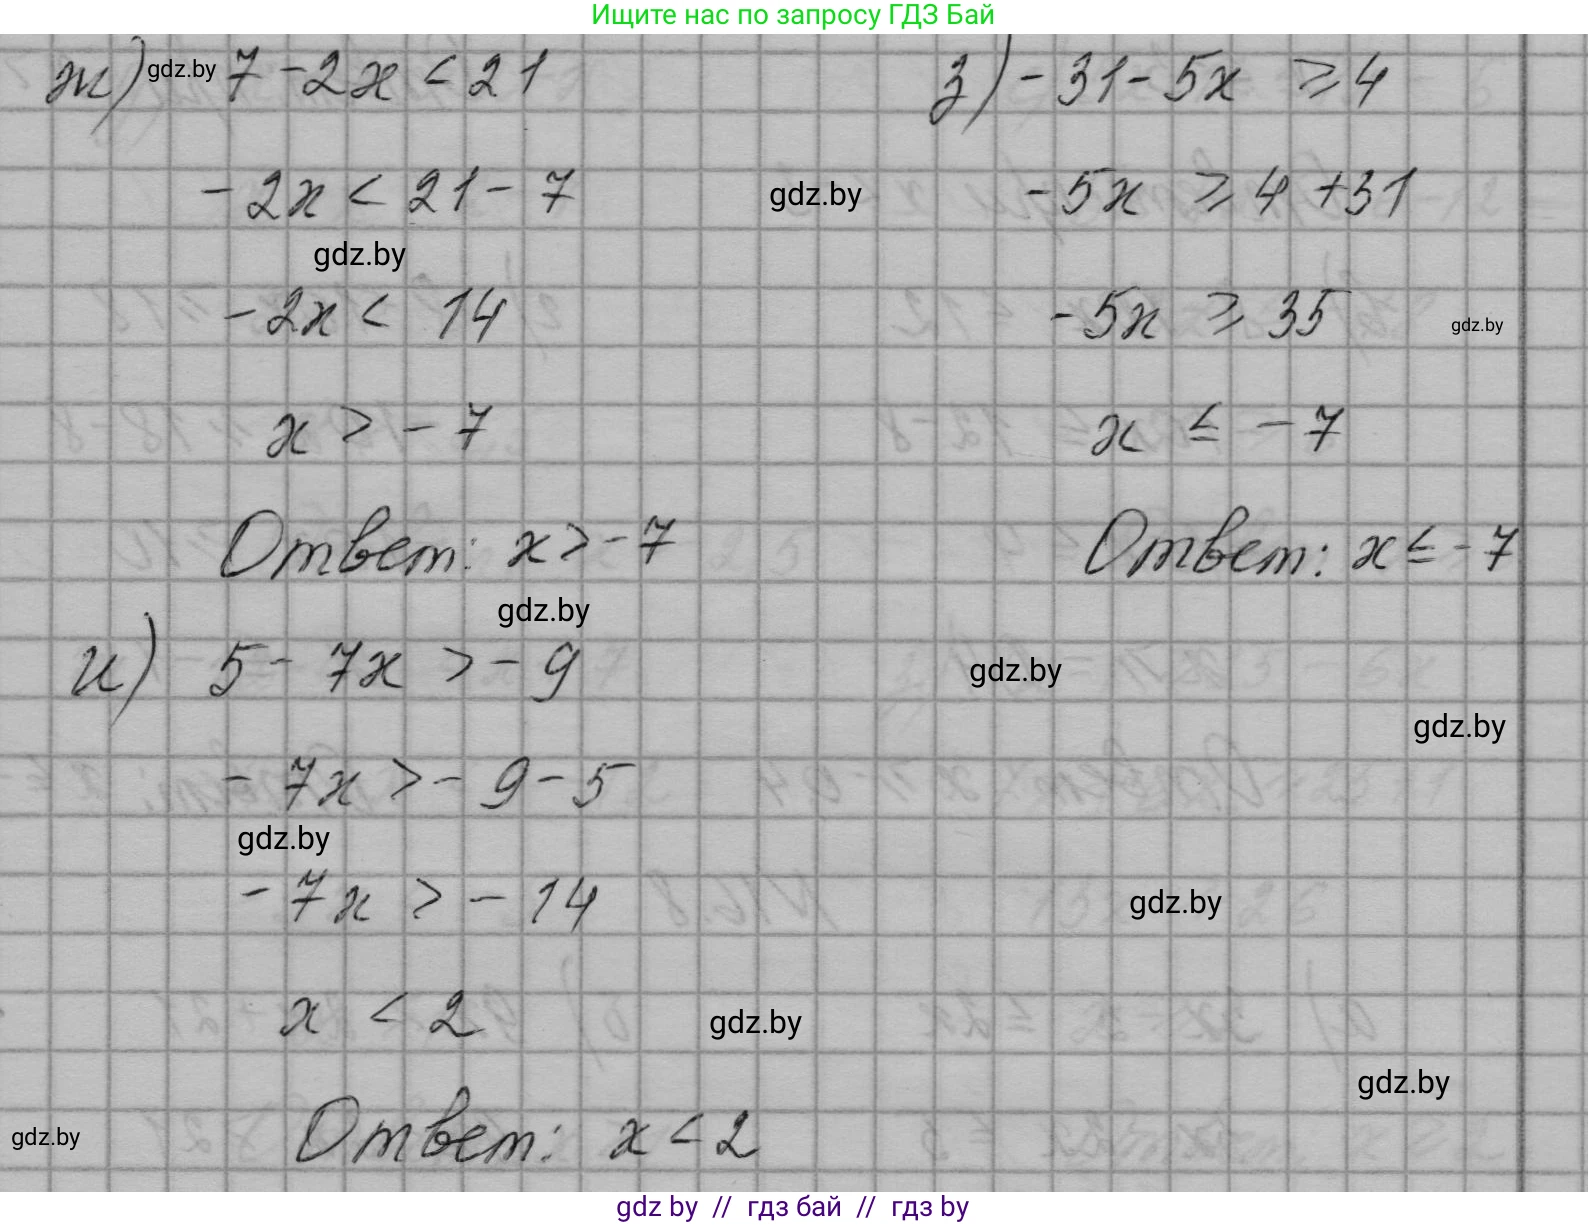 Ищите нас по запросу ГДЗ Бай
ж) gdz.by 7 - 2x < 21
- 2x < 21 - 7
gdz.by
- 2x < 14
x > - 7
Ответ: x > - 7
з) - 31 - 5x ⩾ 4
gdz.by
- 5x ⩾ 4 + 31
- 5x ⩾ 35
gdz.by
x ≤ - 7
Ответ: x ≤ - 7
gdz.by
и) 5 - 7x > - 9
gdz.by
gdz.by
- 7x > - 9 - 5
gdz.by
- 7x > - 14
gdz.by
x < 2
gdz.by
gdz.by
Ответ: x < 2
gdz.by
gdz by // гдз бай // гдз by